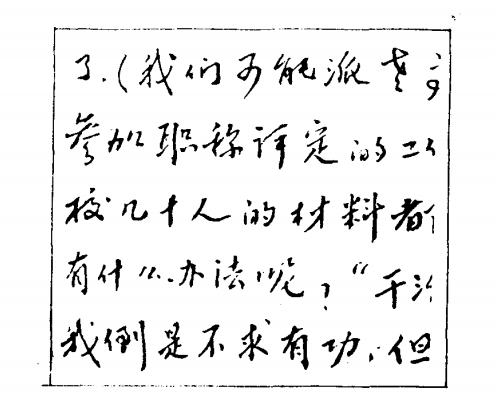 了.(我们可能派
参加职称评定的
校几十人的材料都
有什么办法呢？“干
我倒是不求有功，但